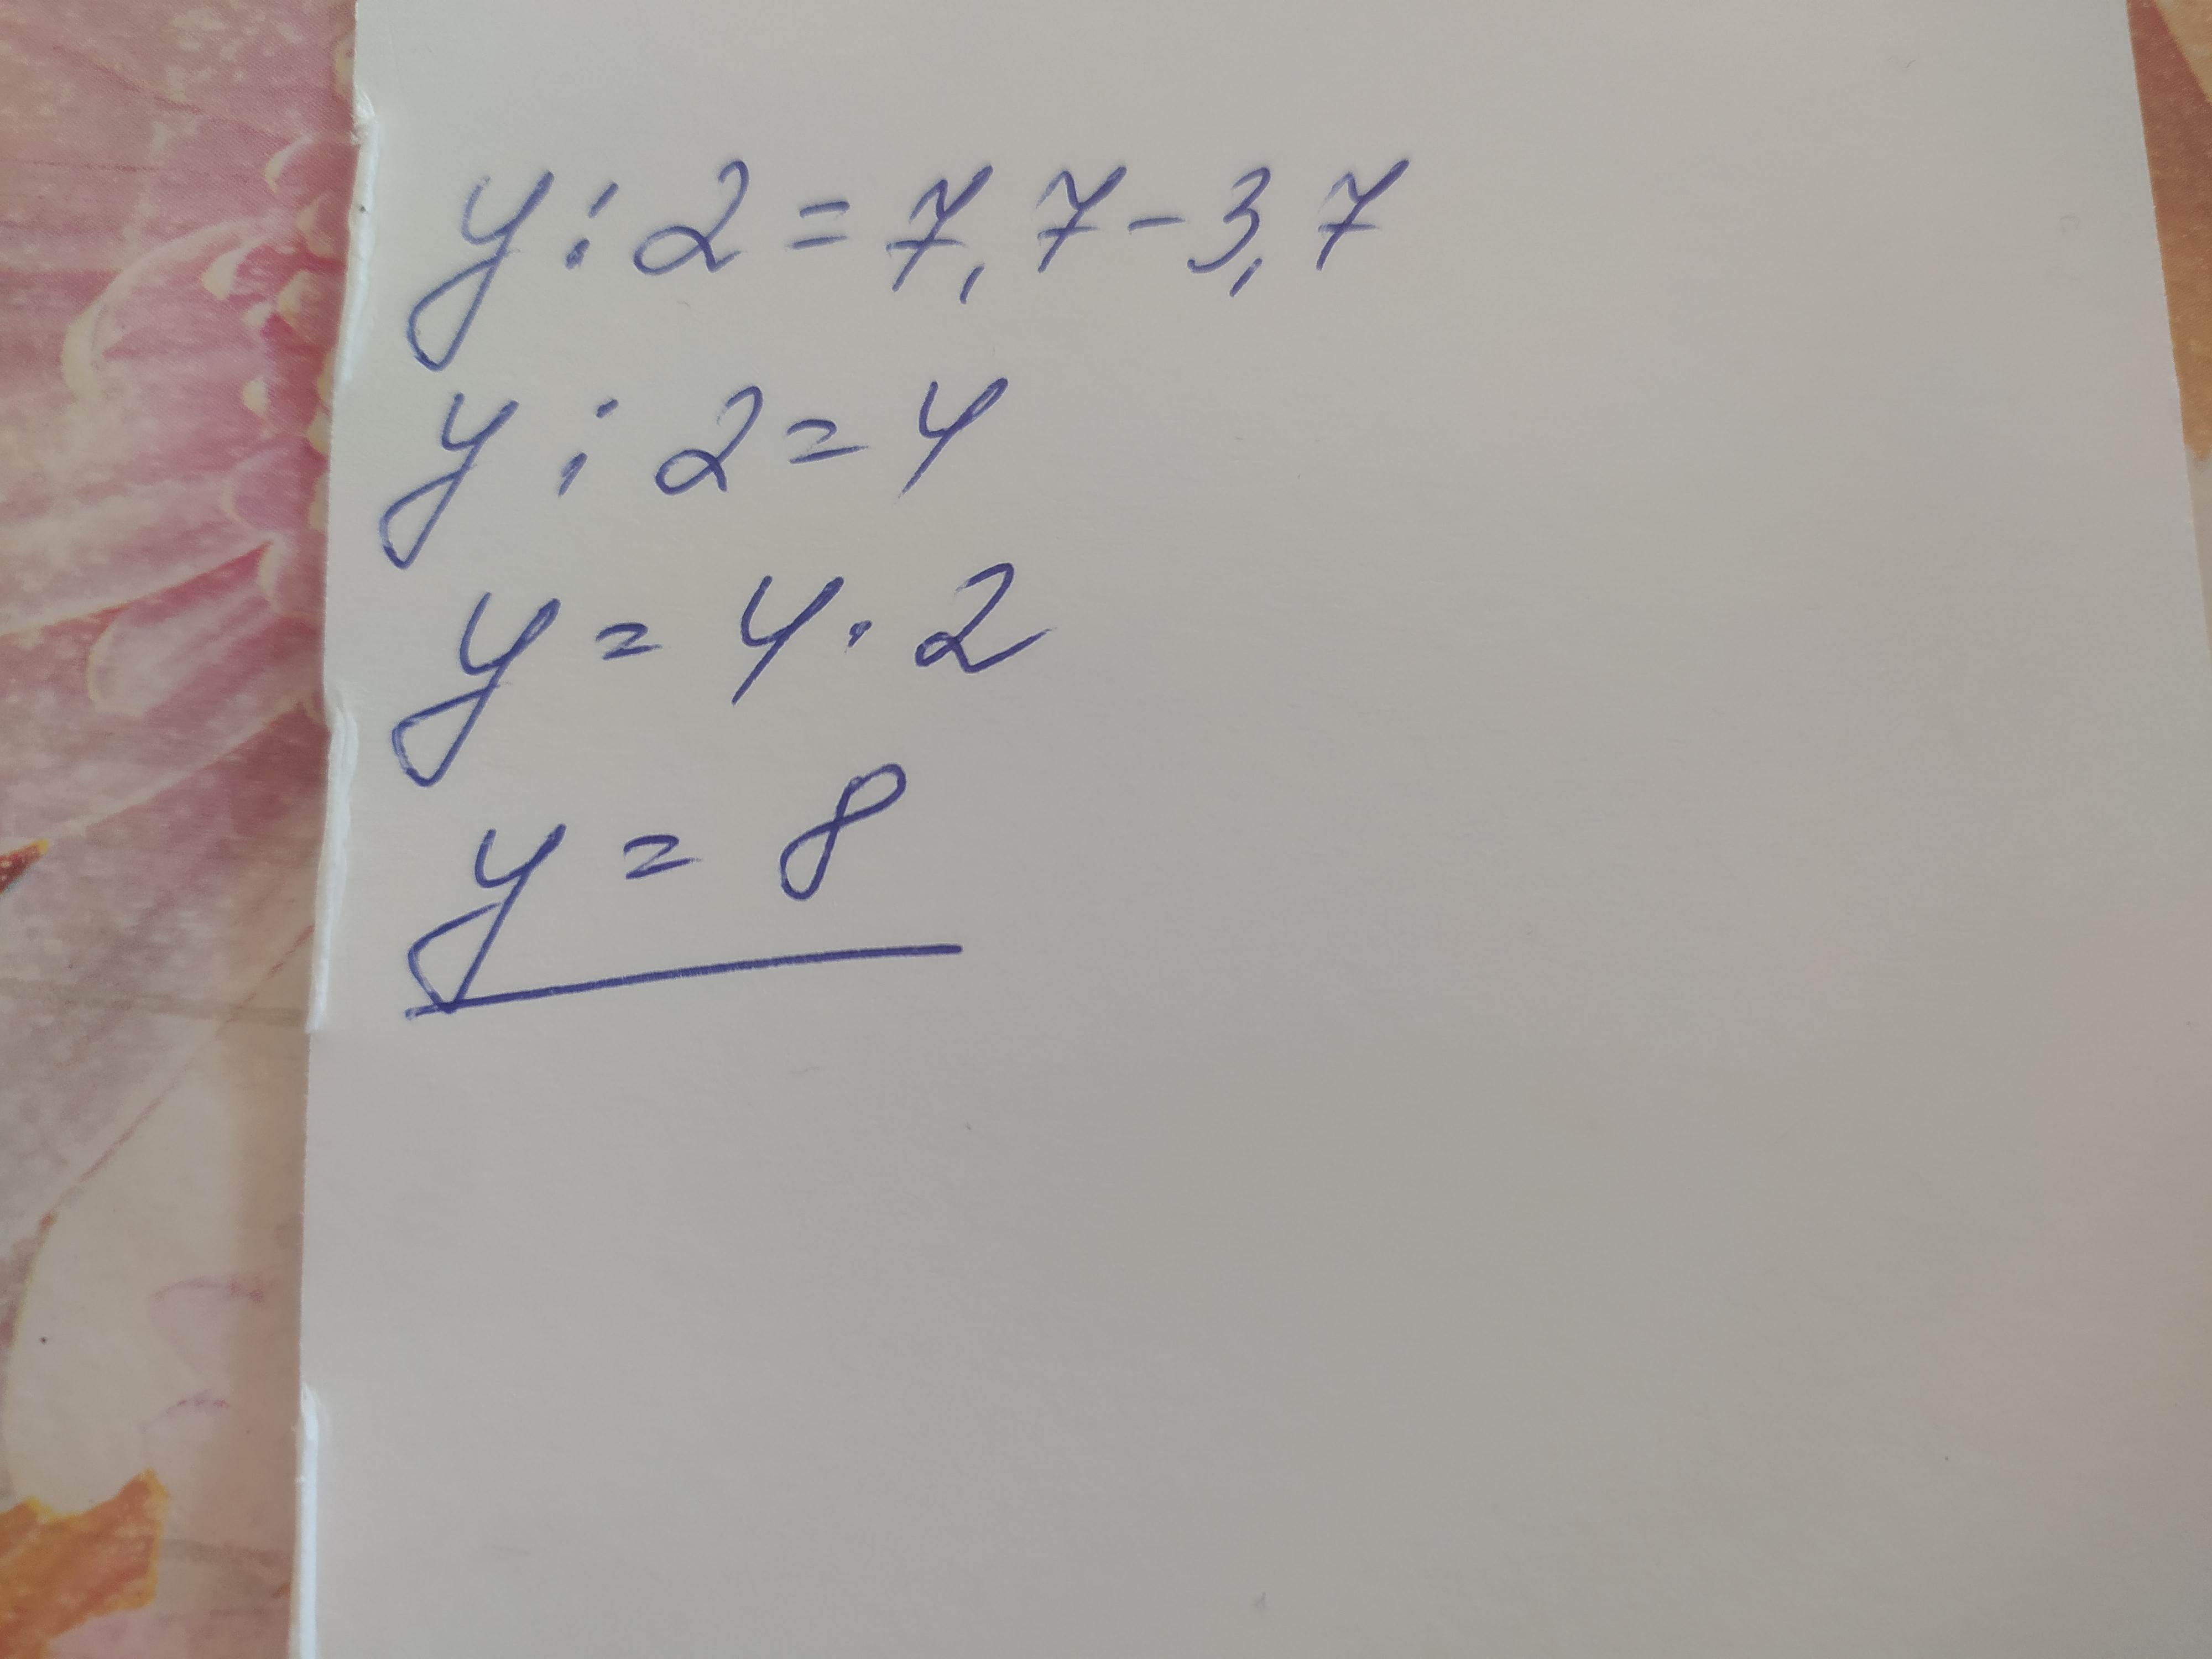 y : 2 = 7,7 - 3,7
y : 2 = 4
y = 4 · 2
y = 8